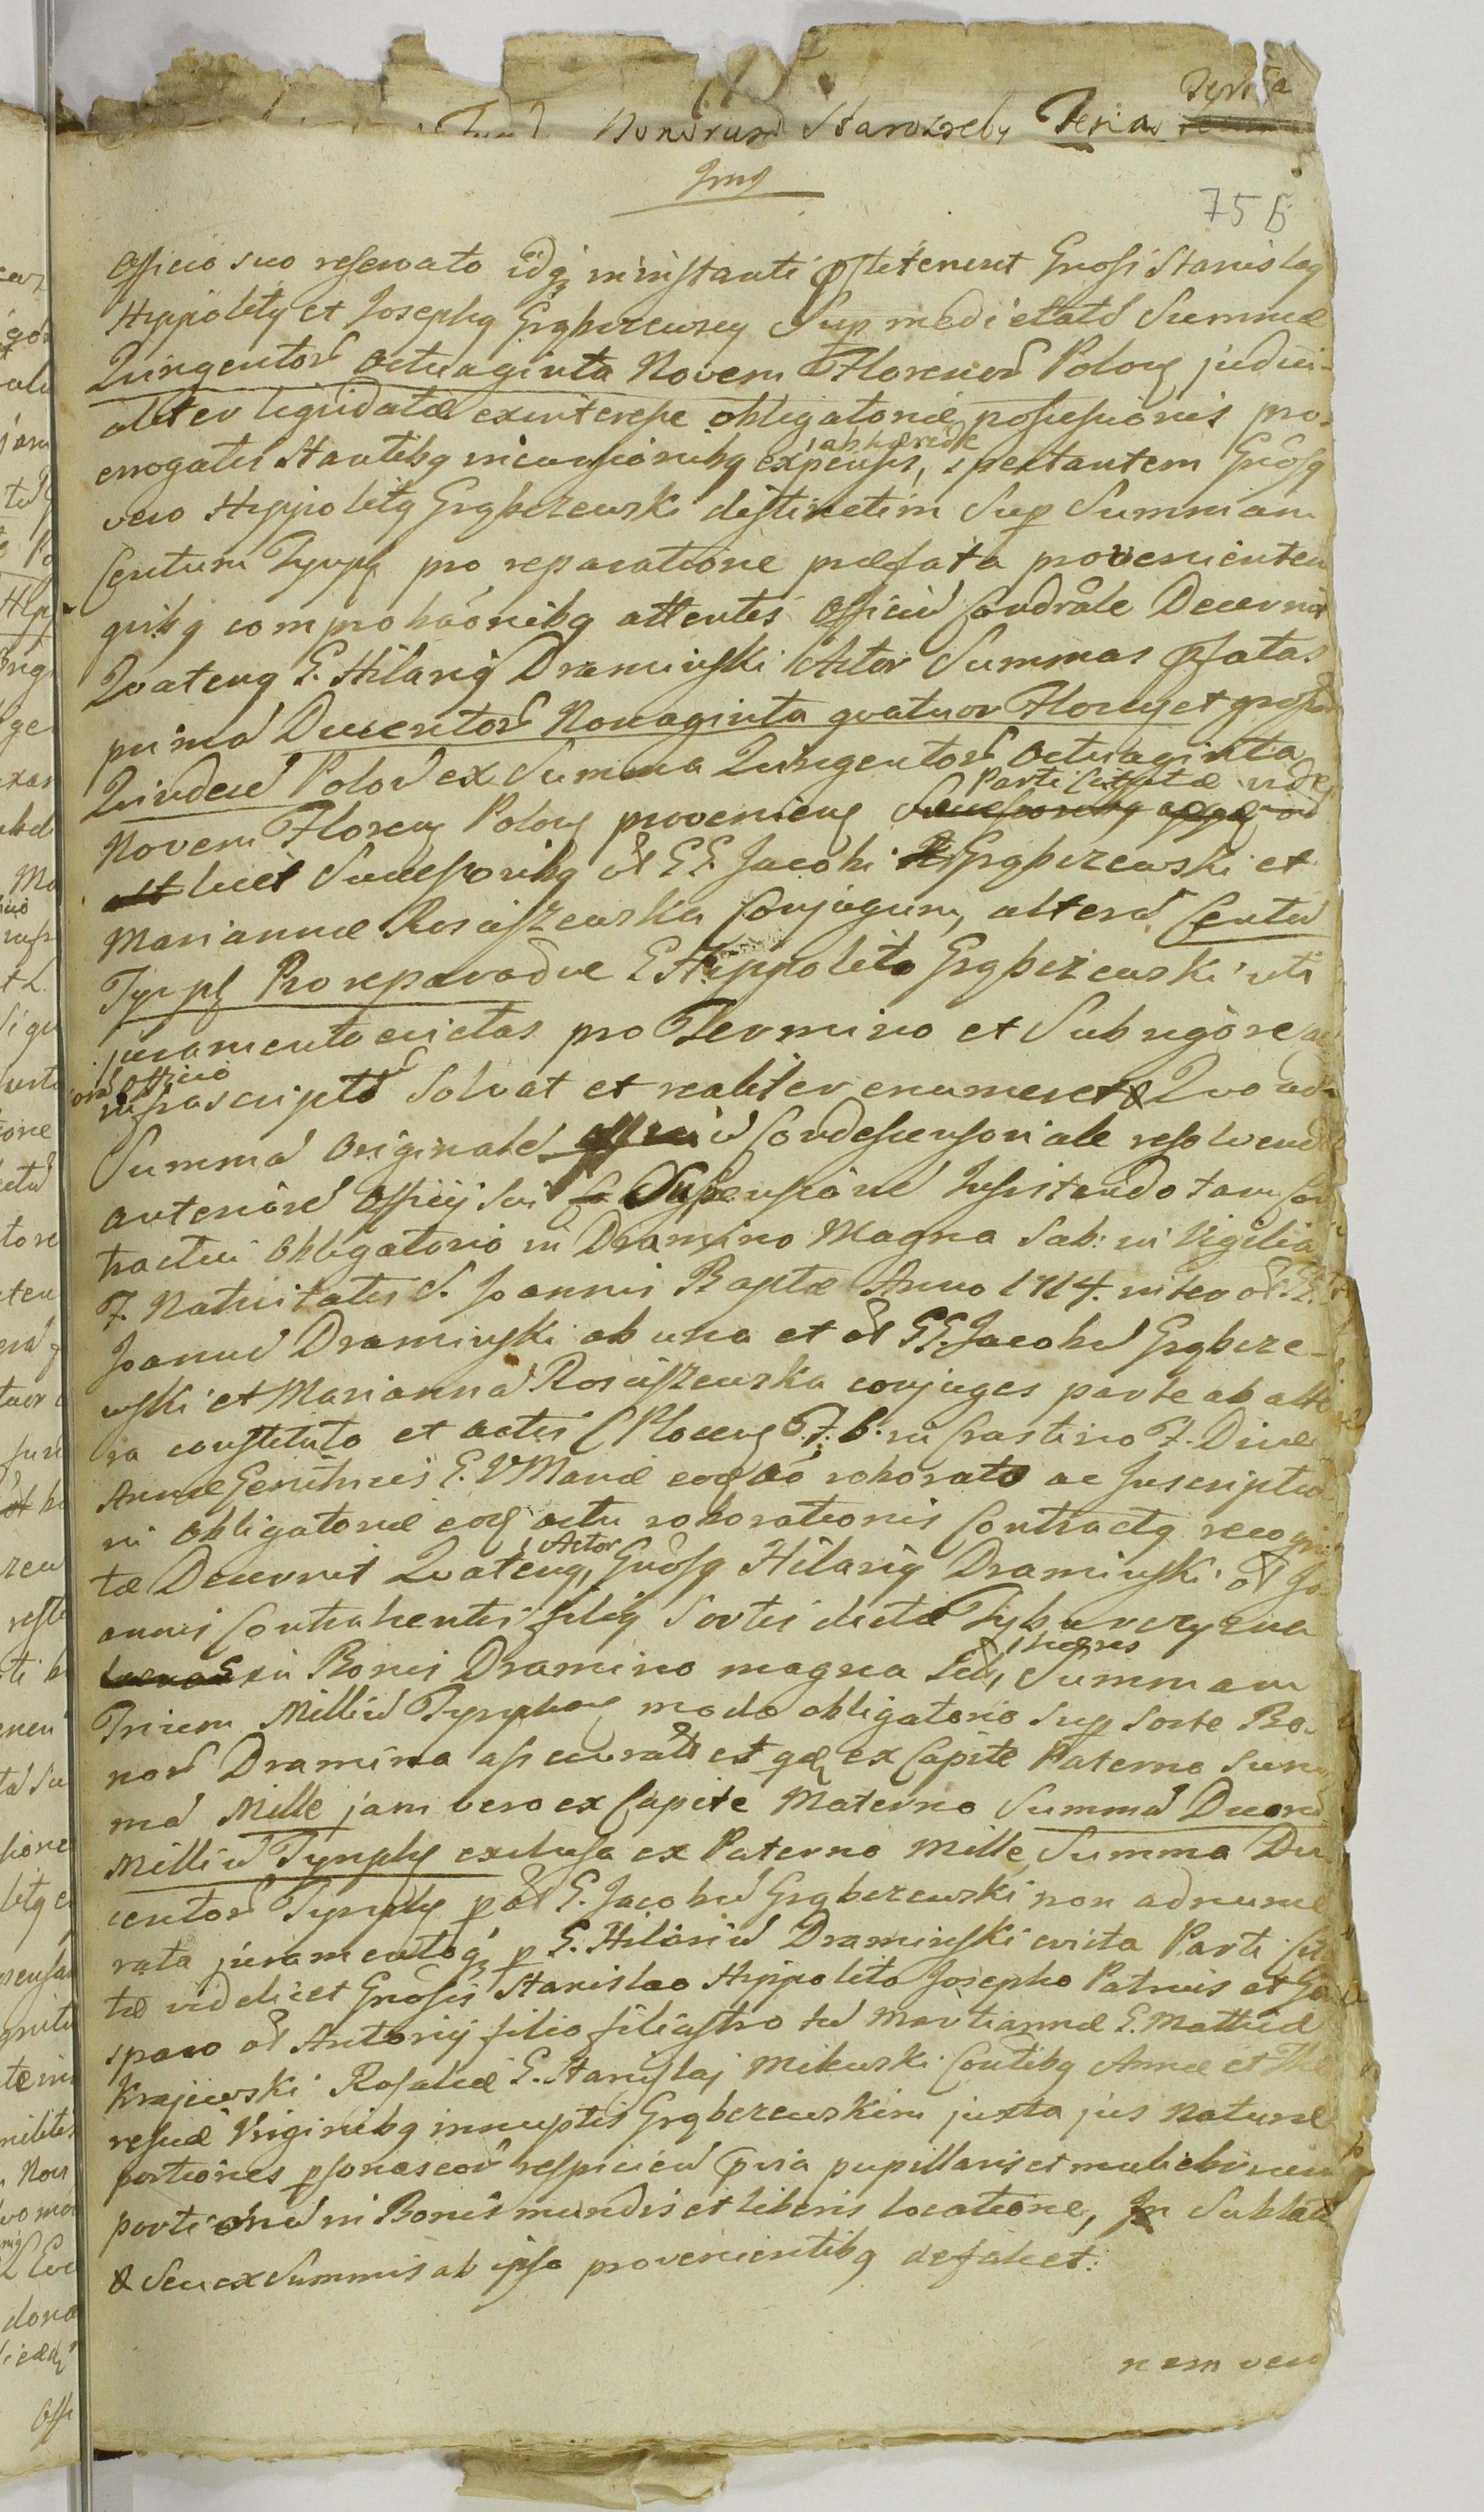 Bonorum Starozreby Feria Sexta
Ima
75 b
Officio suo reservato idq in instanti Pstiterunt Gnosi Stanislaq
Hyppolitq et Josephq Grąbczewscy Sup medietate Summæ
Quingentor Octuaginta Novem Florenor Polonq judici-
aliter liquidatæ ex interesse obligatoriæ possessionis pro-
errogatis Stantibq incursionibq expensis, ab hærede spectantem Gnosq
vero Hyppolitq Grąbczewski distinctim Sup Summam
Centum Tymph pro reparatione præfata provenientem
quibq comprobaonibq attentis Officiu Condrale Decernit
Qvatenq G. Hilariq Dramiński Actor Summas Pfatas
prima Ducentor Nonaginta qvatuor Florenq et grossor
Quindeci Polo ex Summa Quingentor Octuaginta
Novem Florenq Polonq provenienq Parti Citatæ vide
licet Successoribq ol GG. Jacobi Grąbczewski et
Mariannæ Rosciszewska Conjugum, altera Centu
Tymph Pro reparaone G Hyppolito Grąbczewski uti
juramento evictas pro Termino et Sub rigore
cora Officio
infrascripto Solvat et realiter enumeret & Quo ad
Summa Originale Condescensoriale resolvendo
anteriore Officij sui Suspensione Insistendo tam Con
tractui Obligatorio in Dramino Magna Sab: in Vigilia
F. Nativitatis S. Joannis Baptæ Anno 1714. inter ol. G.
Joanne Dramiński ab una et ol GG. Jacobu Grąbcze-
wski et Marianna Rosciszewska conjuges parte ab alte
ra constituto et actis C Plocenq F. 6. in Crastino F. Divæ
Annæ Genitricis G. V Mariæ eod ao roborato ac Inscriptio
ni Obligatoriæ eod actu roborationis Contractq recogni
tæ Decernit Qvatenq, Actor Gnosq Hilariq Dramiński ol Jo
annis Contrahentis filiq Sortis dictæ Tyburczyzna
in Bonis Dramino magna Sitæ, hæres Summam
Trium Milliu Tymphonq modo obligatorio Sup Sorte Bo-
nor Dramina assecurata et qdq ex Capite Paterno Sum
ma Mille jam vero ex Capite Materno Summa Duoru
Milliu Tymphq exclusa ex Paterno Mille Summa Du
centor Tymphq p ol G. Jacobu Grąbczewski non adnume
rata juramentoq p G. Hilariu Dramiński evicta Parti Cita
tæ videlicet Gnosis Stanislao Hyppolito Josepho Patruis et Ga
sparo ol Antonij filio filiastro sed Martiannæ G. Matthiæ
Krajewski Rosaliæ G. Stanislaj Milewski Contibq Annæ et The
resiæ Virginibq innuptis Grąbczewskim juxta jus naturæ
portiones psonas eor respicien Pvia pupillaris et muliebrium
portionu in Bonis mundis et liberis locatione, In Sublati
& Seu ex Summis ab ipso provenientibq defalcet.
nem vero